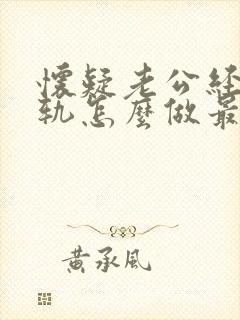 懷疑老公經
軌怎麼做最
黃承風